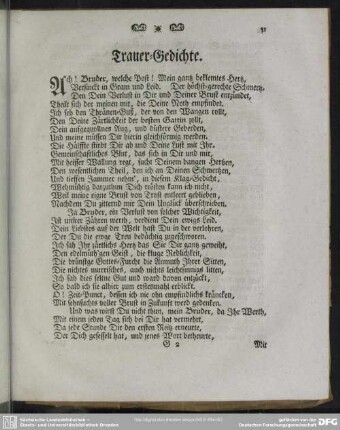 31
Trauer-Gedichte.
Ach! Bruder, welche Post! Mein gantz beklemtes Hertz,
Versinckt in Gram und Leid. Der höchst-gerechte Schmertz,
Den Dein Verlust in Dir und Deiner Brust entzündet,
Theilt sich der meinen mit, die Deine Noth empfindet.
Ich seh den Thränen-Guß, der von den Wangen rollt,
Den Deine Zärtlichkeit der besten Gattin zollt,
Dein aufgequollnes Aug, und düstere Geberden,
Und meine müssen Dir hierin gleichförmig werden.
Die Hälffte stirbt Dir ab und Deine Lust mit Ihr.
Gemeinschafftliches Blut, das sich in Dir und mir,
Mit heisser Wallung regt, sucht Deinem bangen Hertzen,
Den wesentlichen Theil, den ich an Deinen Schmertzen,
Und tiefem Jammer nehm', in diesem Klag-Gedicht,
Wehmüthig darzuthun Dich trösten kann ich nicht,
Weil meine eigne Brust von Trost entleert geblieben,
Nachdem Du zitternd mir Dein Unglück überschrieben.
Ja Bruder, ein Verlust von solcher Wichtigkeit,
Ist unsrer Zähren werth, verdient Dein ewigs Leid.
Dein Liebstes auf der Welt hast Du in der verlohren,
Der Du die ewge Treu bedächtig zugeschworen.
Ich sah Ihr zärtlichs Hertz das Sie Dir gantz geweiht,
Den edelmüth'gen Geist, die kluge Redlichkeit,
Die brünstge Gottes-Furcht die Anmuth Ihrer Sitten,
Die nichtes murrisches, auch nichts leichtsinnigs litten,
Ich sah dies seine Gut und ward davon entzückt,
So bald ich sie albier zum erstenmahl erblickt.
O! Zeit-Punct, dessen ich nie ohn empfindlichs kräncken,
Mit sehnsuchts voller Brust in Zukunft werd gedencken.
Und was wirst Du nicht thun, mein Bruder, da Ihr Werth,
Mit einem jeden Tag sich bei Dir hat vermehrt,
Da jede Stunde Dir den ersten Reitz erneurte,
Der Dich gefesselt hat, und jenes Wort betheurte,
G 2 Mit